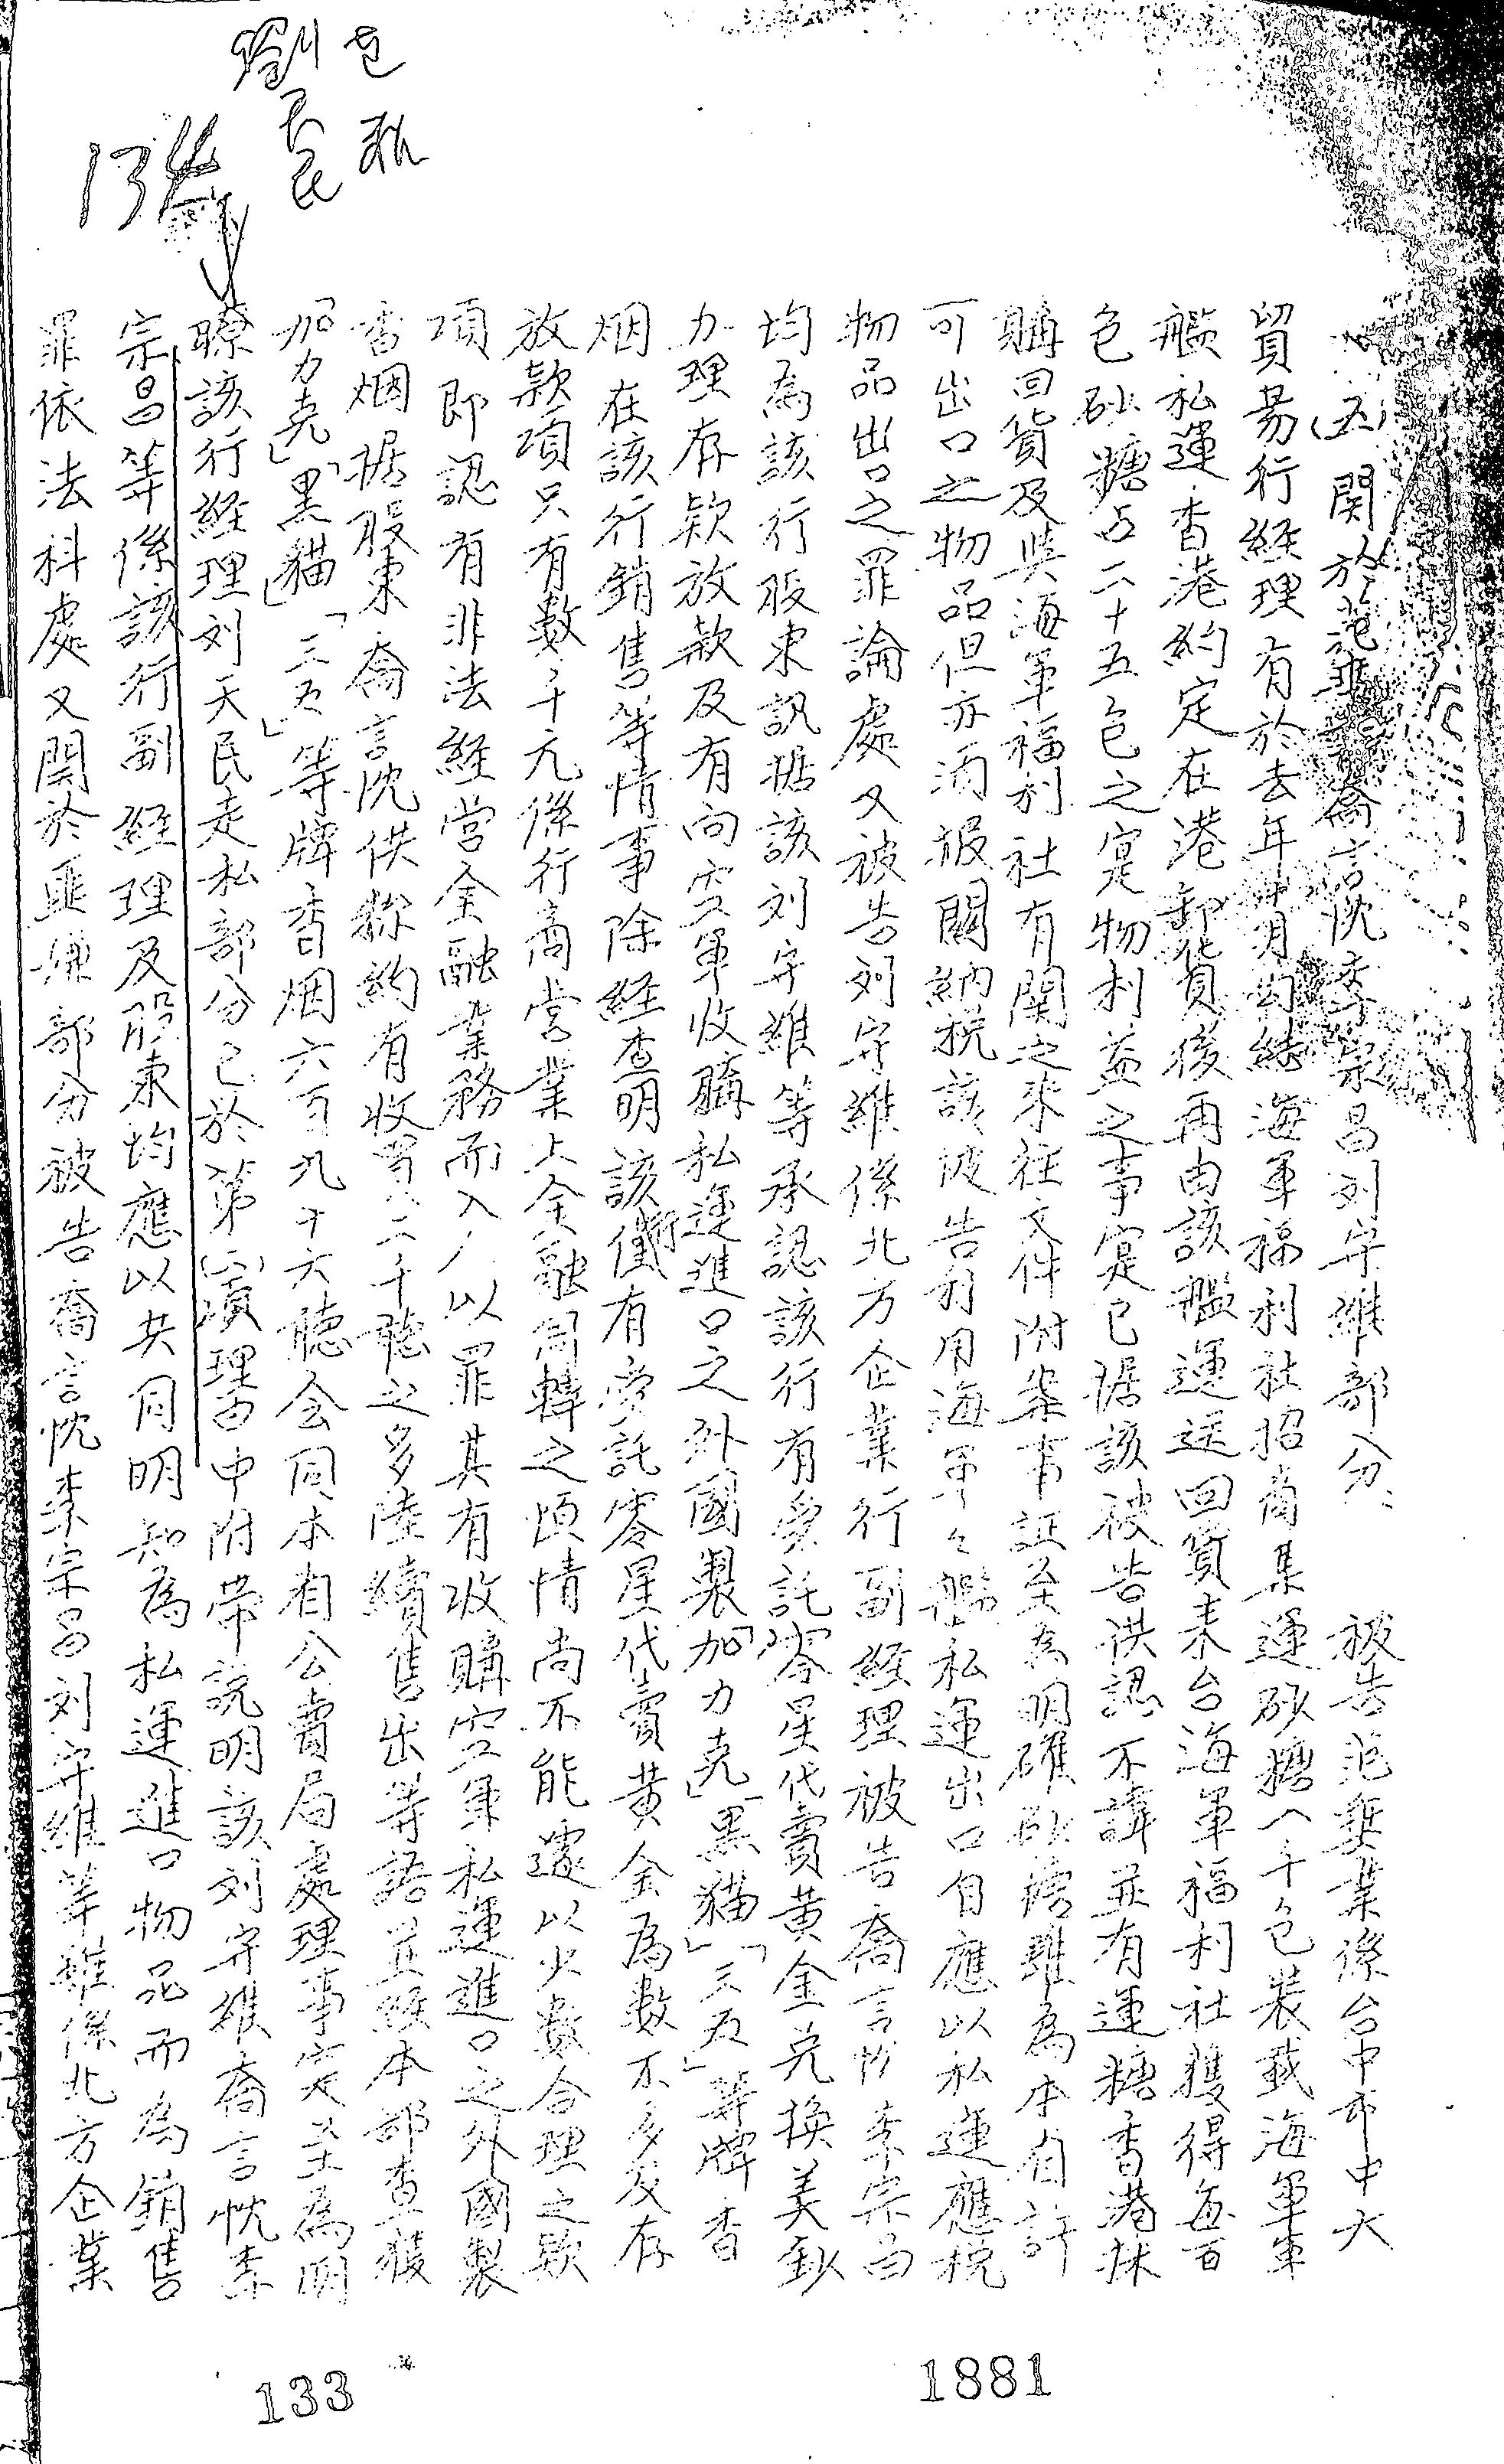 劉天民
走私
134
(五)關於范無咎喬言忱李宗昌刘守維部分 被告范無業係台中市中大
貿易行經理有於去年十月勾結海軍福利社招商集運砂糖八千包裝載海軍軍
艦私運香港約定在港卸貨後再由該艦運送回貨來台海軍福利社獲得每百
包砂糖占二十五包之實物利益之事实已据該被告供認不諱並有運糖香港採
購回貨及與海軍福利社有關之來往文件附案事証至為明確砂糖雖為本省許
可出口之物品但亦須报關納税該被告利用海軍々艦私運出口自應以私運應税
物品出口之罪論處又被告刘守維係北方企業行副經理被告喬言忱李宗昌
均為該行股東訊据該刘守維等承認該行有受託零星代賣黄金兑換美鈔
力理存款放款及有向空軍收購私運進口之外國製「加力克」「黑貓」「三五」等牌香
烟在該行銷售等情事除經查明該行僅有受託零星代賣黄金為数不多及存
放款項只有数千元係行商営業上金融周轉之煩情尚不能遽以少数合理之款
項即認有非法經営金融業務而入以罪其有收購空軍私運進口之外國製
香烟据股東喬言忱供称約有收買二千聽之多陸續售出等語並經本部查獲
「加力克」「黑貓」「三五」等牌香烟六百九十六聽会同本省公賣局處理事实至為明
瞭該行経理刘天民走私部分已於第(二)項理由中附带説明該刘守維喬言忱李
宗昌等係該行副經理及股東均應以共同明知為私運進口物品而為銷售
罪依法科處又関於匪嫌部分被告喬言忱李宗昌刘守維等雖係北方企業
133
1881